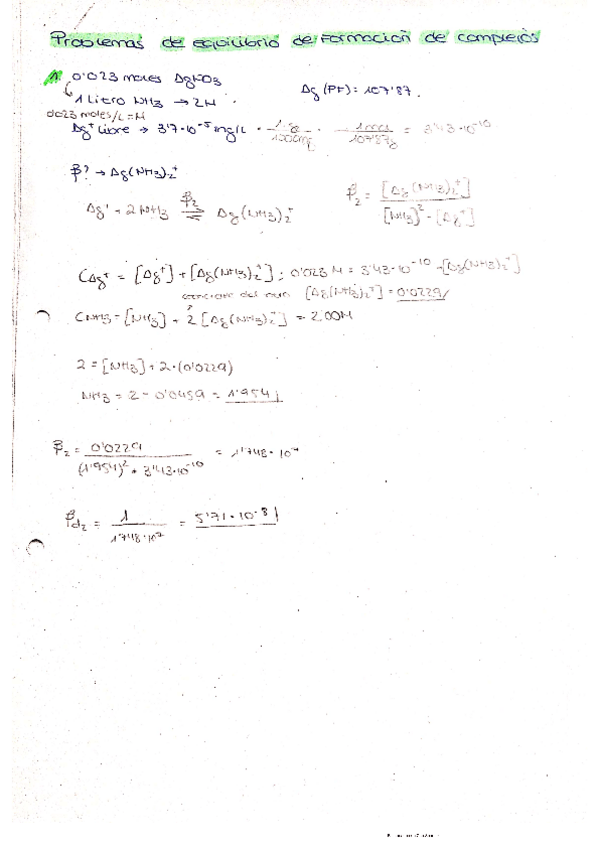 Problemas de equilibrio de Formación de complejos
1. 0'023 moles AgNO3
Ag (PF) = 107'87.
1 Litro NH3 → 2M
0'023 moles/L = M
Ag+ Libre → 3'7·10^-5 mg/L · 1g/1000mg · 1mol/107'87g = 3'43·10^-10
β? → Ag(NH3)2+
Ag+ + 2NH3 ⇌ Ag(NH3)2+ β2
β2 = [Ag(NH3)2+] / [NH3]^2 · [Ag+]
CAg+ = [Ag+] + [Ag(NH3)2+] ; 0'023 M = 3'43·10^-10 + [Ag(NH3)2+]
[Ag(NH3)2+] = 0'0229
CNH3 = [NH3] + 2 [Ag(NH3)2+] = 2'00M
2 = [NH3] + 2·(0'0229)
NH3 = 2 - 0'0459 = 1'954
β2 = 0'0229 / (1'954)^2 · 3'43·10^-10 = 1'748·10^7
βd2 = 1 / 1'748·10^7 = 5'71·10^-8